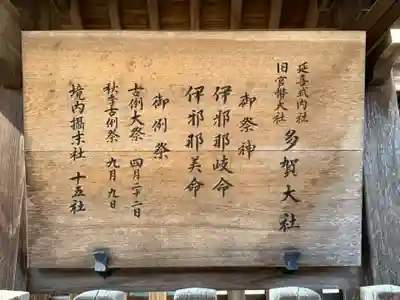 延喜式内社
旧官幣大社
多賀大社
御祭神
伊邪那岐命
伊邪那美命
御例祭
古例大祭 四月二十二日
秋季古例祭 九月九日
境内攝末社 十五社